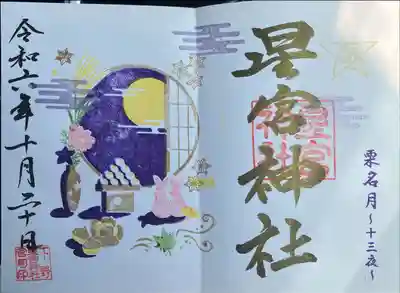 星宮神社
星宮神社
栗名月〜十三夜〜
令和六年十月二十日